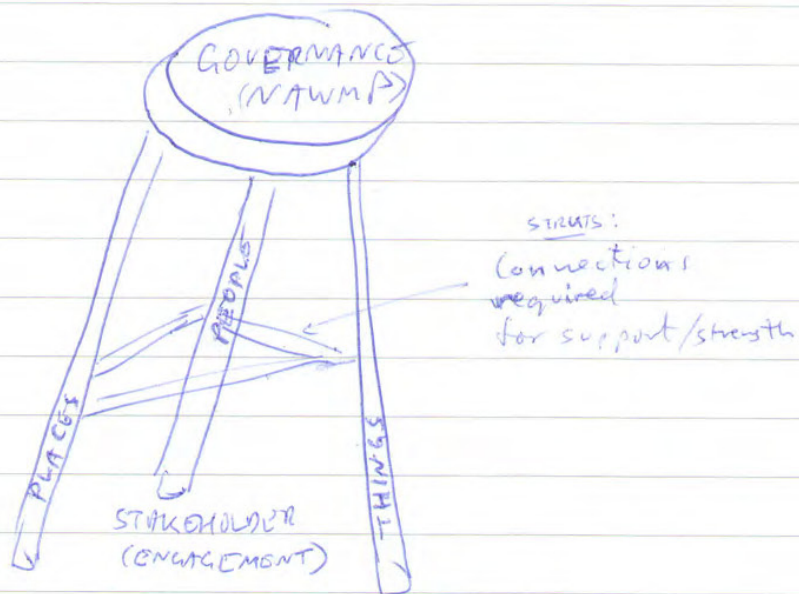 GOVERNANCE
(NAWMP)
STRUTS:
Connections
required
for support/strength
PEOPLE
PLACES
THINGS
STAKEHOLDER
(ENGAGEMENT)